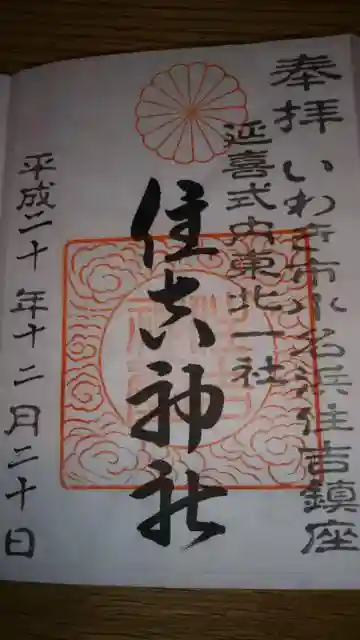 奉拝
いわき市小名浜住吉鎮座
延喜式内東北一社
住吉神社
平成二十年十二月二十日